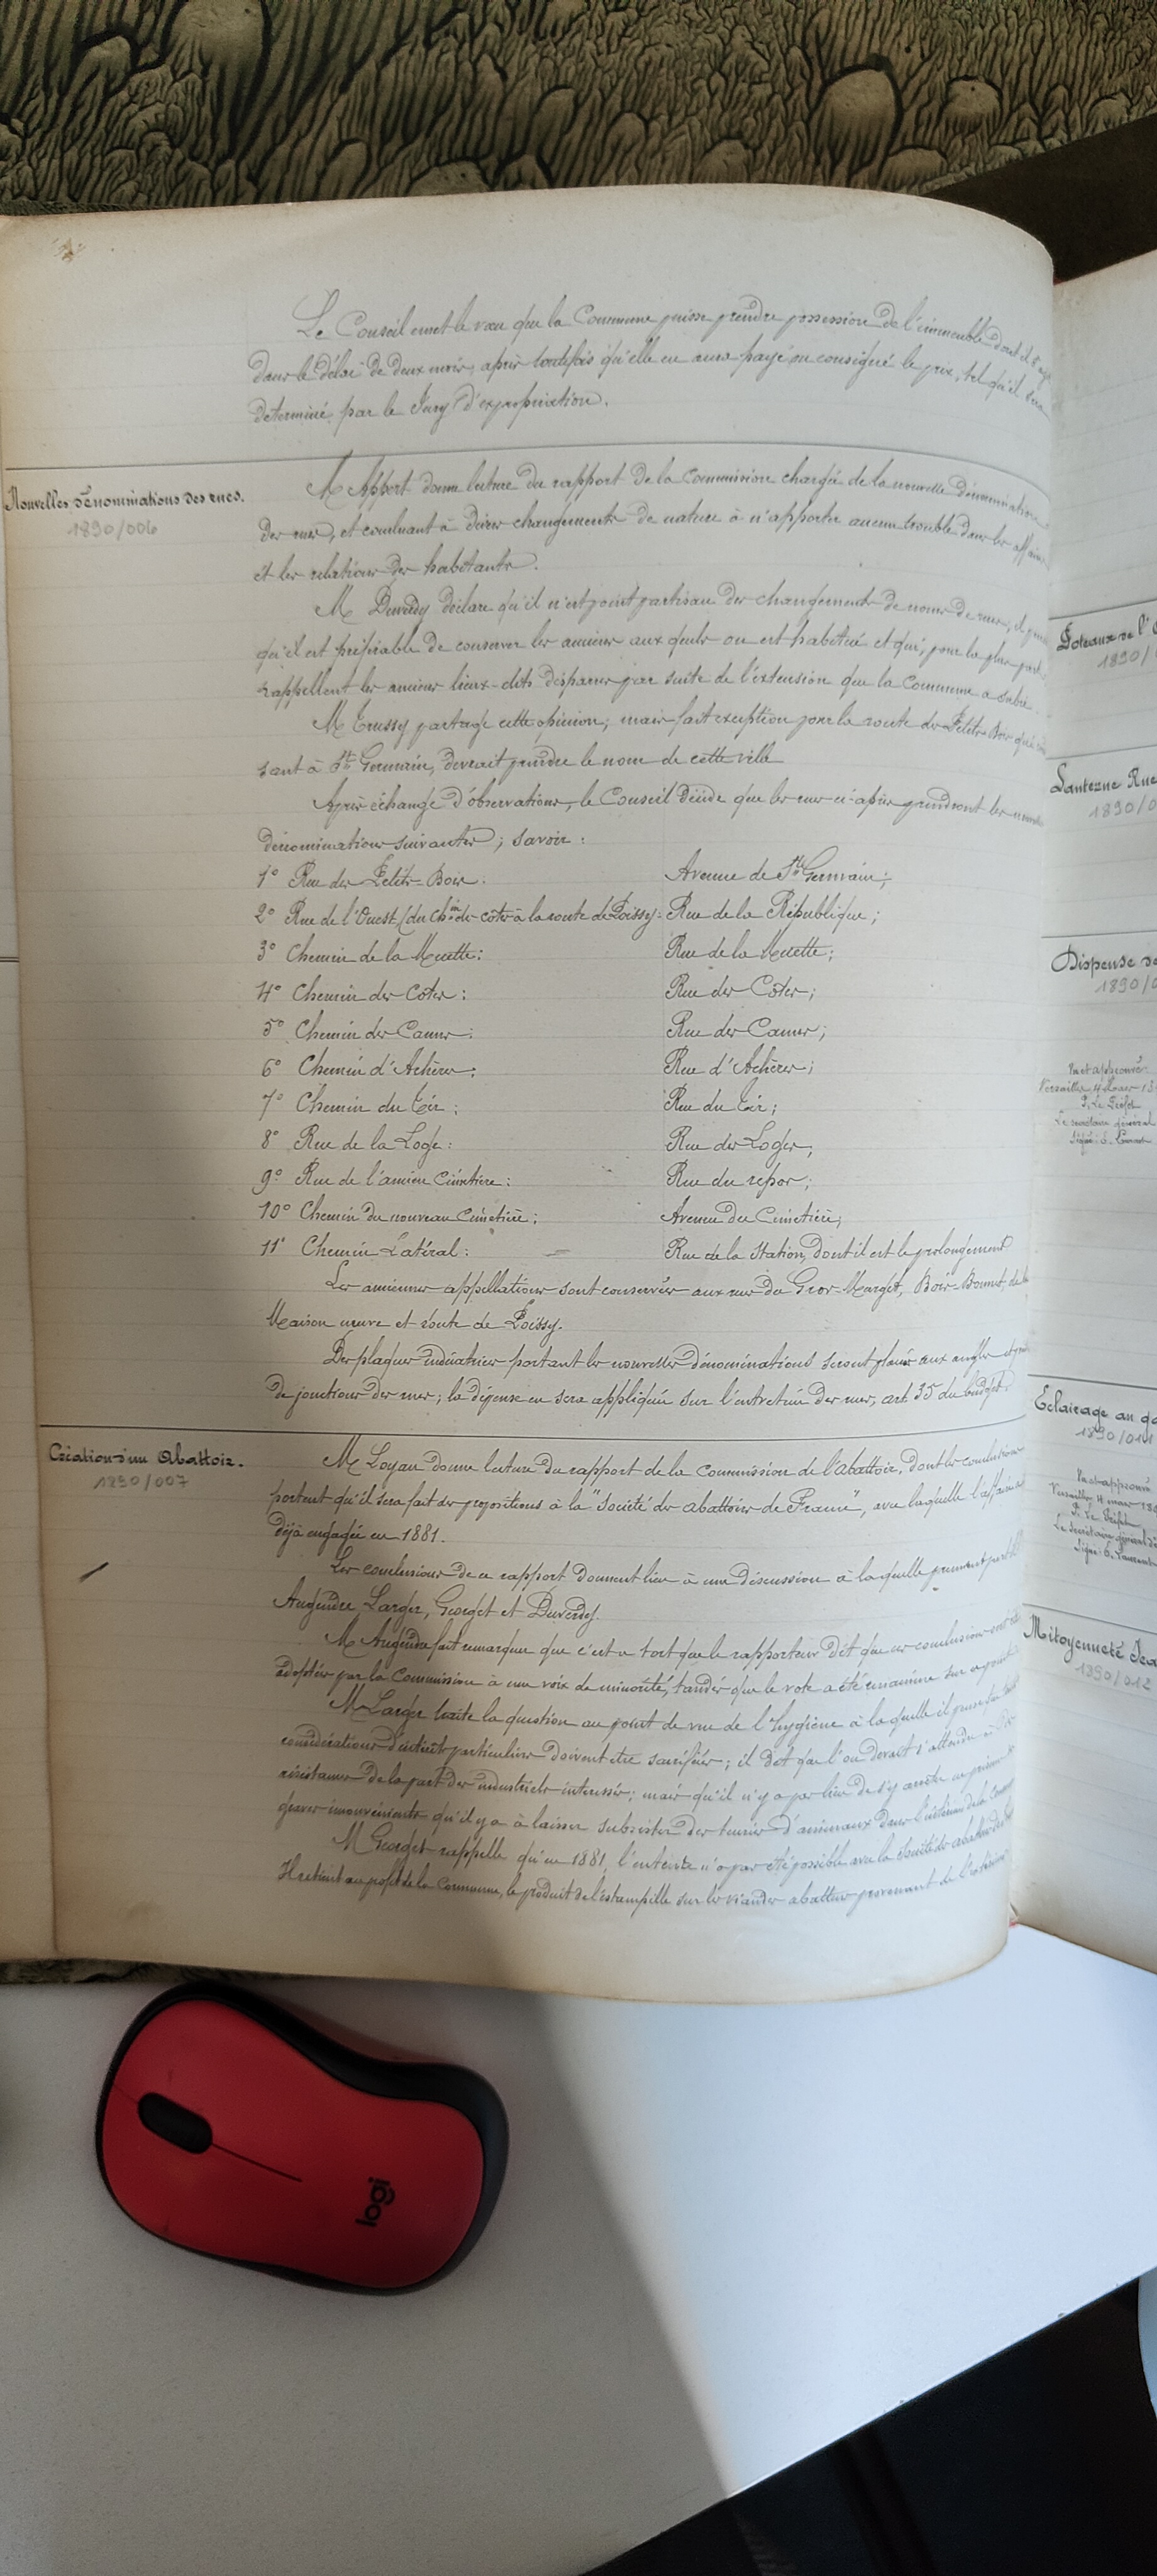 Le Conseil émet le vœu que la Commune puisse prendre possession de l'immeuble dont il s'agit
dans le délai de deux mois, après toutefois qu'elle en aura payé ou consigné le prix, tel qu'il sera
déterminé par le Jury d'expropriation.
Nouvelles dénominations des rues.
1890/006
M Appert donne lecture du rapport de la Commission chargée de la nouvelle dénomination
des rues, et concluant à divers changements de nature à n'apporter aucun trouble dans les affaires
et les relations des habitants.
M Duverdy déclare qu'il n'est point partisan des changements de noms de rues; il
qu'il est préférable de conserver les anciens aux quels on est habitué et qui, pour la plus part
rappellent les anciens lieux-dits disparus par suite de l'extension que la Commune a subie.
M Trussy partage cette opinion; mais fait exception pour la route des Petits-Bois qui
sant à St Germain, devrait prendre le nom de cette ville
Après échange d'observations, le Conseil décide que les rues ci-après prendront les nouvelles
dénominations suivantes; savoir:
1° Rue des Petits-Bois. Avenue de St Germain;
2° Rue de l'Ouest, (du chin des côtes à la route de Poissy: Rue de la République;
3° Chemin de la Muette: Rue de la Muette;
4° Chemin des Côtes: Rue des Côtes;
5° Chemin des Cannes: Rue des Cannes;
6° Chemin d'Achères: Rue d'Achères;
7° Chemin du Tir: Rue du Tir;
8° Rue de la Loge: Rue des Loges,
9° Rue de l'ancien Cimetière: Rue du repos;
10° Chemin du nouveau Cimetière: Avenue du Cimetière;
11° Chemin Latéral: Rue de la Station, dont il est le prolongement
Les anciennes appellations sont conservées aux rues du Gros-Murget, Bois-Bonnet, de la
Maison neuve et route de Poissy.
Des plaques indicatrices portant les nouvelles dénominations seront placées aux angles et
de jonctions des rues; la dépense en sera appliquée sur l'entretien des rues, art 35 du budget.
Création d'un Abattoir.
1890/007
M Loyau donne lecture du rapport de la Commission de l'abattoir, dont les conclusions
portent qu'il sera fait des propositions à la "Société des abattoirs de France", avec laquelle l'affaire a
déjà engagée en 1881.
Les conclusions de ce rapport donnent lieu à une discussion à laquelle prennent part
Augendre Larger, Georget et Duverdy.
M Augendre fait remarquer que c'est à tort que le rapporteur dit que ces conclusions ont été
adoptées par la Commission à une voix de minorité, tandis que le vote a été unanime sur ce point
M Larger traite la question au point de vue de l'hygiène à laquelle il pense que toutes
considérations d'intérêts particuliers doivent être sacrifiées; il dit que l'on devait s'attendre à des
résistances de la part des industriels intéressés; mais qu'il n'y a pas lieu de s'y arrêter en présence des
graves inconvénients qu'il y a à laisser subsister des tueries d'animaux dans l'intérieur de la Commune
M Georget rappelle qu'en 1881, l'entente n'a pas été possible avec la Société des abattoirs
Il retient au profit de la Commune, le produit de l'estampille sur les viandes abattues provenant de l'extérieur
Poteaux de l'
1890/
Lanterne Rue
1890/0
Dispense de
1890/0
Vu et approuvé:
Versailles, 4 mars 18
P. Le Préfet
Le secrétaire général
Signé: E.
Eclairage au ga
1890/011
Vu et approuvé
Versailles 4 mars 189
P. Le Préfet
Le secrétaire général
Signé: E.
Mitoyenneté
1890/012
logi